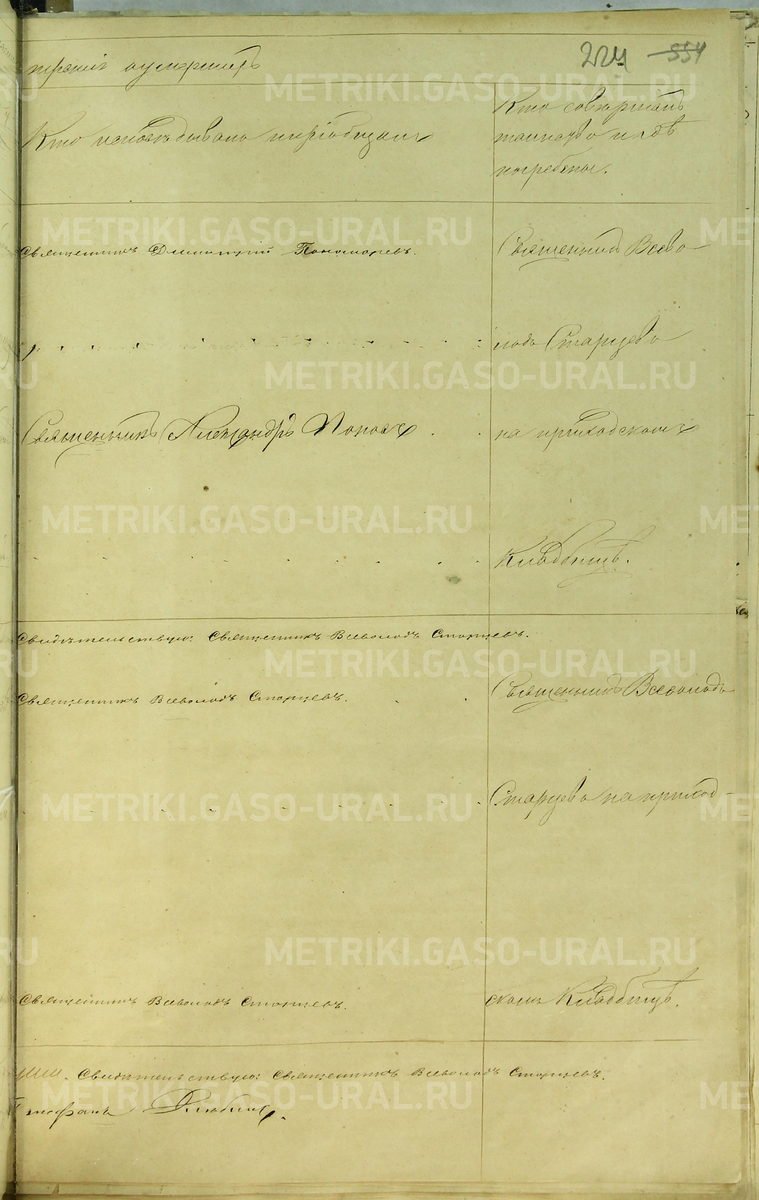 224 554
третiя о умершихъ
Кто исповѣдывалъ и прiобщалъ
Кто совершалъ
таинство и гдѣ
погребены.
METRIKI.GASO-URAL.RU
Священникъ Димитрiй Пономаревъ.
Священникъ Всево-
лодъ Старцевъ
Священникъ Александръ Поповъ
на приходскомъ
Кладбищѣ.
Свидѣтельствую: Священникъ Всеволодъ Старцевъ.
Священникъ Всеволодъ Старцевъ.
Священникъ Всеволодъ
Старцевъ на приход-
Священникъ Всеволодъ Старцевъ.
скомъ Кладбищѣ.
Свидѣтельствую: Священникъ Всеволодъ Старцевъ.